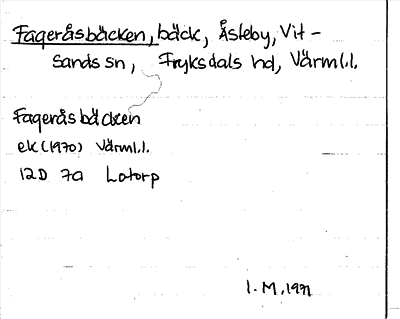 Fageråsbäcken, bäck, Åsteby, Vit-
sands sn, Fryksdals hd, Värml.l.
Fageråsbäcken
ek (1970) Värml.l.
12D 7a Lotorp
I.M, 1971